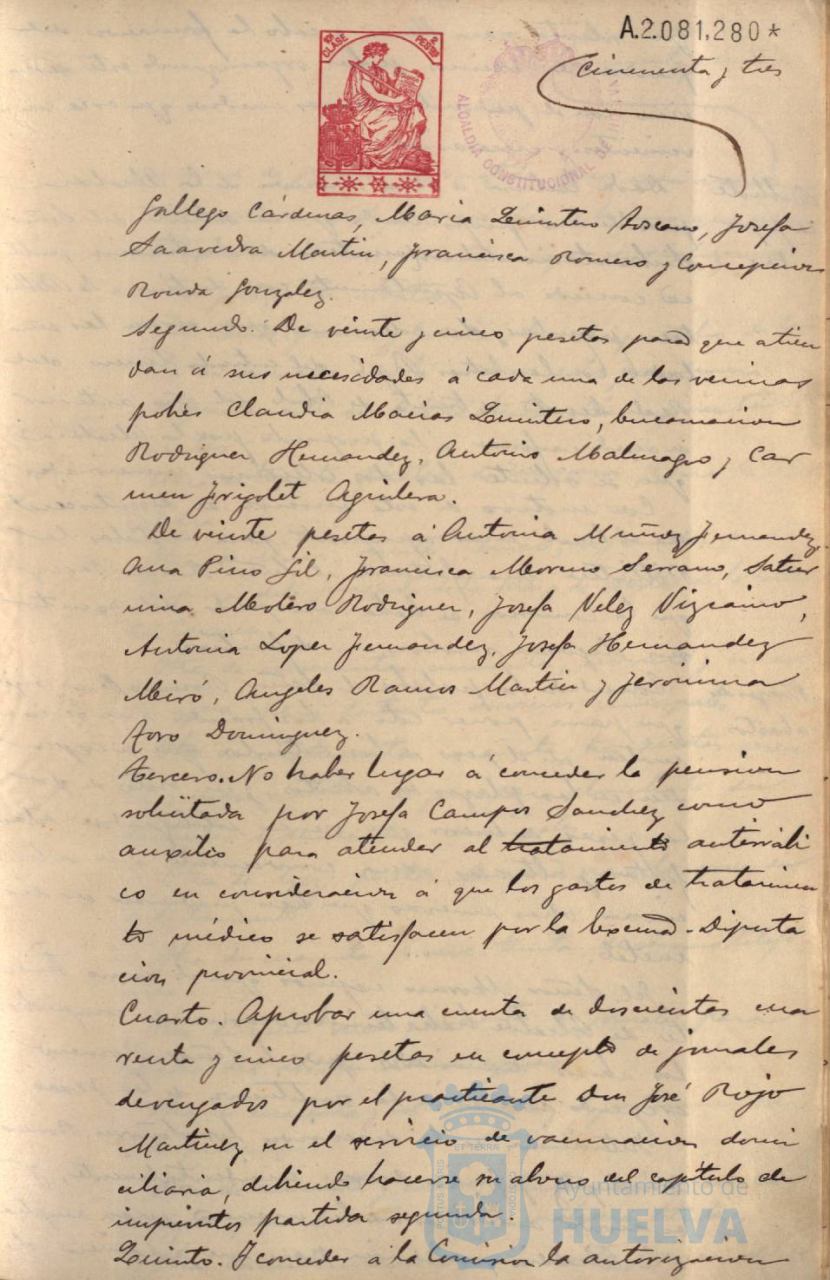 A.2.081,280*
10ª CLASE 2 PESETAS
ALCALDIA CONSTITUCIONAL DE
Cincuenta y tres
Gallego Cárdenas, Maria Quintero Toscano, Josefa
Saavedra Martin, Francisca Romero y Concepcion
Ronda Gonzalez.
Segundo. De veinte y cinco pesetas para que atien
dan á sus necesidades á cada una de las vecinas
pobres Claudia Macias Quintero, Encarnacion
Rodriguez Hernandez, Antonio Malmagro y Car
men Frigolet Aguilera.
De veinte pesetas á Antonia Muñoz Fernandez,
Ana Pino Gil, Francisca Moreno Serrano, Satur
nina Molero Rodriguez, Josefa Velez Vizcaino,
Antonia Lopez Fernandez, Josefa Hernandez
Miró, Angeles Ramos Martin y Jerónima
Toro Dominguez.
Tercero. No haber lugar á conceder la pension
solicitada por Josefa Campos Sanchez como
auxilio para atender al tratamiento antirrábi
co en consideracion á que los gastos de tratamien
to médico se satisfacen por la Excma. Diputa
cion provincial.
Cuarto. Aprobar una cuenta de doscientas cua
renta y cinco pesetas en concepto de jornales
devengados por el practicante Don José Rojo
Martinez en el servicio de vacunacion domi
ciliaria, debiendo hacerse su abono del capítulo de
imprevistos partida segunda.
Quinto. Y conceder á la Comision la autorizacion
Ayuntamiento de
HUELVA